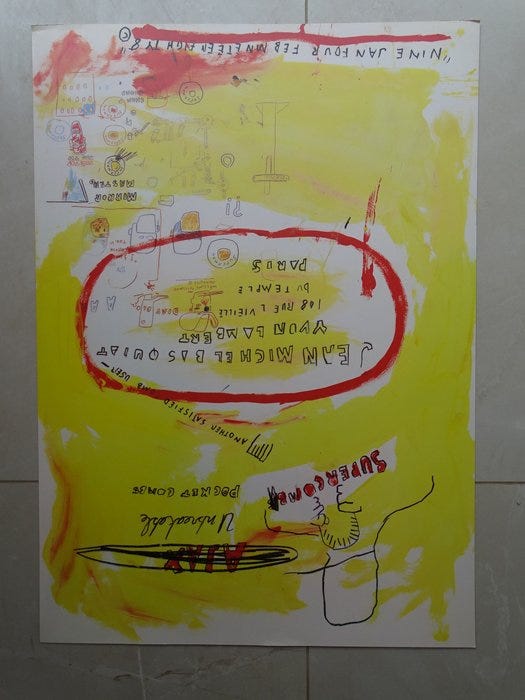 AJAX
Unbreakable
POCKET COMBS
SUPERCOMB
ANOTHER SATISFIED COMB USER—
JEAN MICHEL BASQUIAT
YVON LAMBERT
108 RUE L VIEILLE
DU TEMPLE
PARIS
MIRROR
MASTER
"NINE JANFOUR FEB NINETEENEIGHTY8" ©